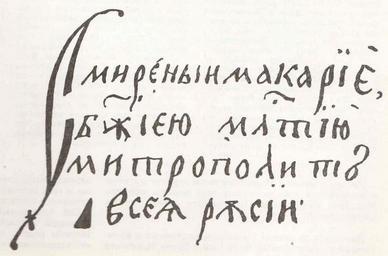 Смире́ныи макарїе,
бж҃їею мл҃тїю
митропо́литъ
всеѧ̀ рꙋсїи·